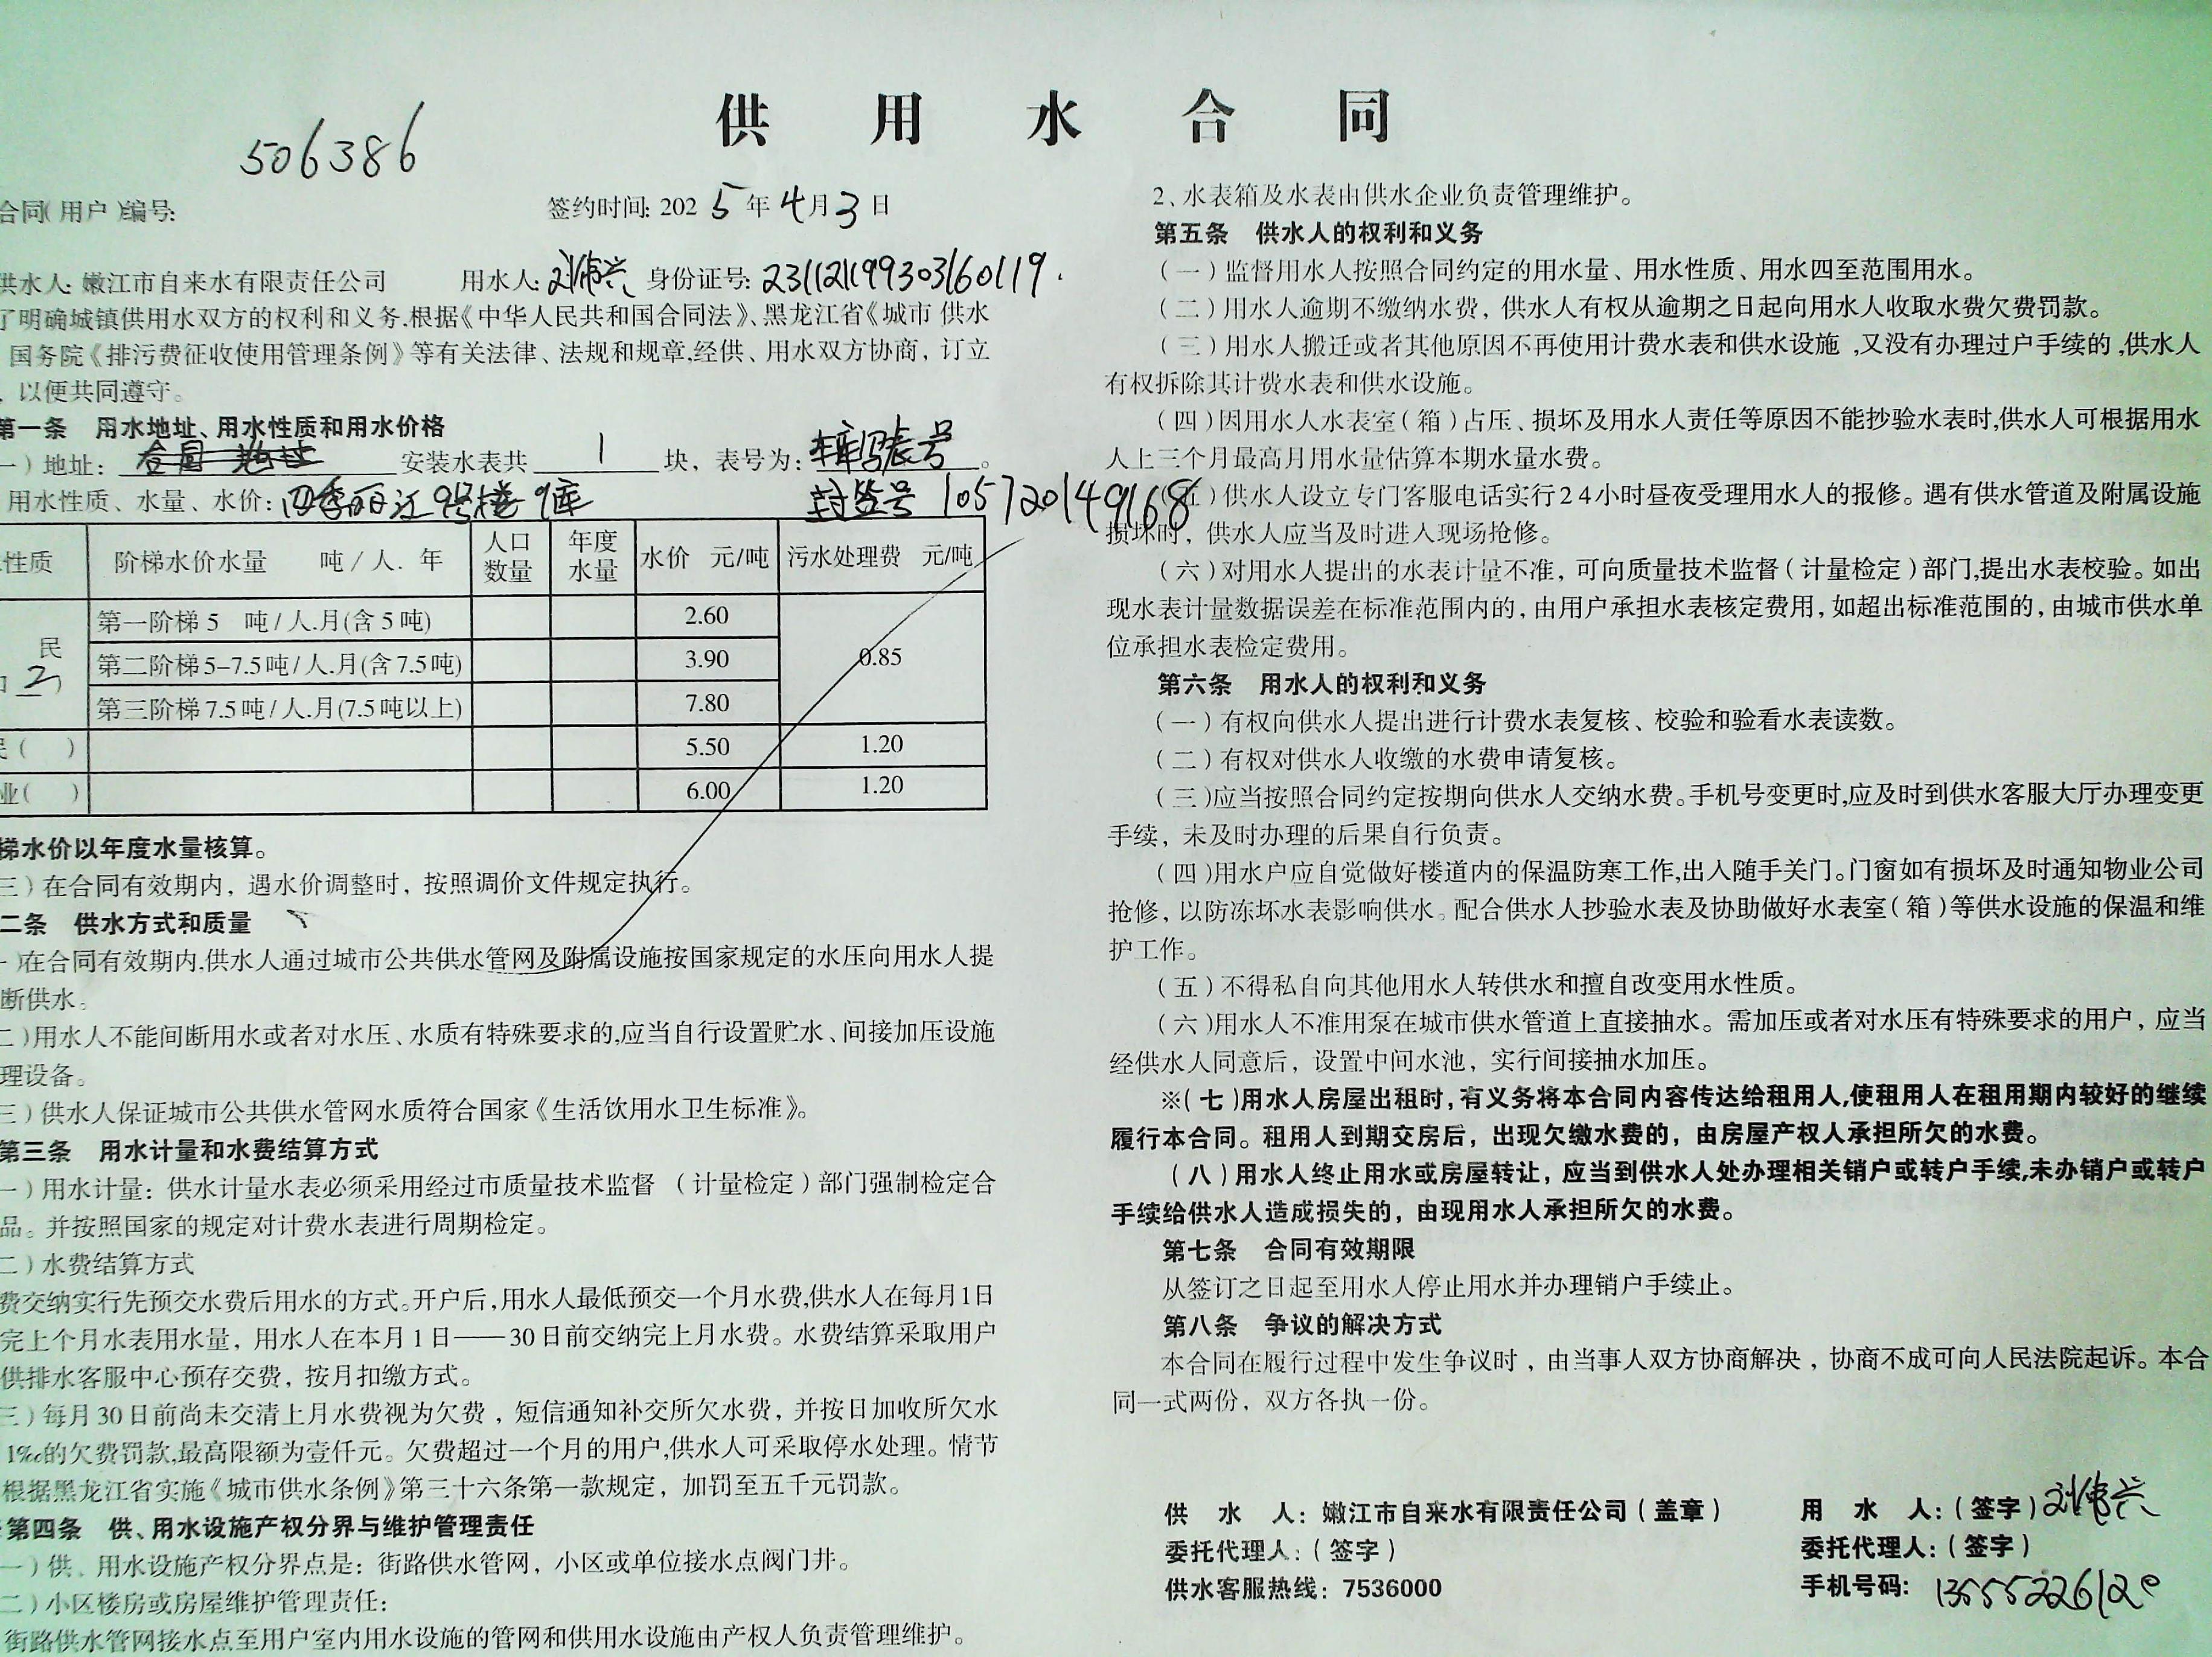 供用水合同
506386
合同(用户)编号:
签约时间: 2025年4月3日
供水人: 嫩江市自来水有限责任公司 用水人: 刘伟兴 身份证号: 231121199303160119.
了明确城镇供用水双方的权利和义务,根据《中华人民共和国合同法》、黑龙江省《城市 供水
国务院《排污费征收使用管理条例》等有关法律、法规和规章,经供、用水双方协商，订立
，以便共同遵守。
第一条 用水地址、用水性质和用水价格
一）地址： 安装水表共 1 块，表号为：
用水性质、水量、水价: 四季丽江9号楼9库
封签号 105720149168
性质 阶梯水价水量 吨/人.年 人口数量 年度水量 水价 元/吨 污水处理费 元/吨
民
2）
第一阶梯 5 吨/人.月(含5吨) 2.60
第二阶梯 5-7.5吨/人.月(含7.5吨) 3.90 0.85
第三阶梯 7.5吨/人.月(7.5吨以上) 7.80
民（ ） 5.50 1.20
业（ ） 6.00 1.20
梯水价以年度水量核算。
三）在合同有效期内，遇水价调整时，按照调价文件规定执行。
二条 供水方式和质量
一)在合同有效期内,供水人通过城市公共供水管网及附属设施按国家规定的水压向用水人提
断供水。
二)用水人不能间断用水或者对水压、水质有特殊要求的,应当自行设置贮水、间接加压设施
理设备。
三）供水人保证城市公共供水管网水质符合国家《生活饮用水卫生标准》。
第三条 用水计量和水费结算方式
一）用水计量：供水计量水表必须采用经过市质量技术监督 （计量检定）部门强制检定合
品。并按照国家的规定对计费水表进行周期检定。
二）水费结算方式
费交纳实行先预交水费后用水的方式。开户后,用水人最低预交一个月水费,供水人在每月1日
完上个月水表用水量，用水人在本月1日——30日前交纳完上月水费。水费结算采取用户
供排水客服中心预存交费，按月扣缴方式。
三）每月30日前尚未交清上月水费视为欠费，短信通知补交所欠水费，并按日加收所欠水
1‰的欠费罚款,最高限额为壹仟元。欠费超过一个月的用户,供水人可采取停水处理。情节
根据黑龙江省实施《城市供水条例》第三十六条第一款规定，加罚至五千元罚款。
第四条 供、用水设施产权分界与维护管理责任
一）供、用水设施产权分界点是：街路供水管网，小区或单位接水点阀门井。
二）小区楼房或房屋维护管理责任：
街路供水管网接水点至用户室内用水设施的管网和供用水设施由产权人负责管理维护。
2、水表箱及水表由供水企业负责管理维护。
第五条 供水人的权利和义务
（一）监督用水人按照合同约定的用水量、用水性质、用水四至范围用水。
（二）用水人逾期不缴纳水费，供水人有权从逾期之日起向用水人收取水费欠费罚款。
（三）用水人搬迁或者其他原因不再使用计费水表和供水设施,又没有办理过户手续的,供水人
有权拆除其计费水表和供水设施。
（四）因用水人水表室（箱）占压、损坏及用水人责任等原因不能抄验水表时,供水人可根据用水
人上三个月最高月用水量估算本期水量水费。
（五）供水人设立专门客服电话实行24小时昼夜受理用水人的报修。遇有供水管道及附属设施
损坏时，供水人应当及时进入现场抢修。
（六）对用水人提出的水表计量不准，可向质量技术监督（计量检定）部门,提出水表校验。如出
现水表计量数据误差在标准范围内的，由用户承担水表核定费用，如超出标准范围的，由城市供水单
位承担水表检定费用。
第六条 用水人的权利和义务
（一）有权向供水人提出进行计费水表复核、校验和验看水表读数。
（二）有权对供水人收缴的水费申请复核。
（三)应当按照合同约定按期向供水人交纳水费。手机号变更时,应及时到供水客服大厅办理变更
手续，未及时办理的后果自行负责。
（四)用水户应自觉做好楼道内的保温防寒工作,出入随手关门。门窗如有损坏及时通知物业公司
抢修，以防冻坏水表影响供水。配合供水人抄验水表及协助做好水表室（箱）等供水设施的保温和维
护工作。
（五）不得私自向其他用水人转供水和擅自改变用水性质。
（六)用水人不准用泵在城市供水管道上直接抽水。需加压或者对水压有特殊要求的用户，应当
经供水人同意后，设置中间水池，实行间接抽水加压。
※（七)用水人房屋出租时,有义务将本合同内容传达给租用人,使租用人在租用期内较好的继续
履行本合同。租用人到期交房后，出现欠缴水费的，由房屋产权人承担所欠的水费。
（八）用水人终止用水或房屋转让，应当到供水人处办理相关销户或转户手续,未办销户或转户
手续给供水人造成损失的，由现用水人承担所欠的水费。
第七条 合同有效期限
从签订之日起至用水人停止用水并办理销户手续止。
第八条 争议的解决方式
本合同在履行过程中发生争议时，由当事人双方协商解决，协商不成可向人民法院起诉。本合
同一式两份，双方各执一份。
供 水 人：嫩江市自来水有限责任公司（盖章） 用 水 人：（签字）刘伟兴
委托代理人：（签字） 委托代理人：（签字）
供水客服热线：7536000 手机号码：